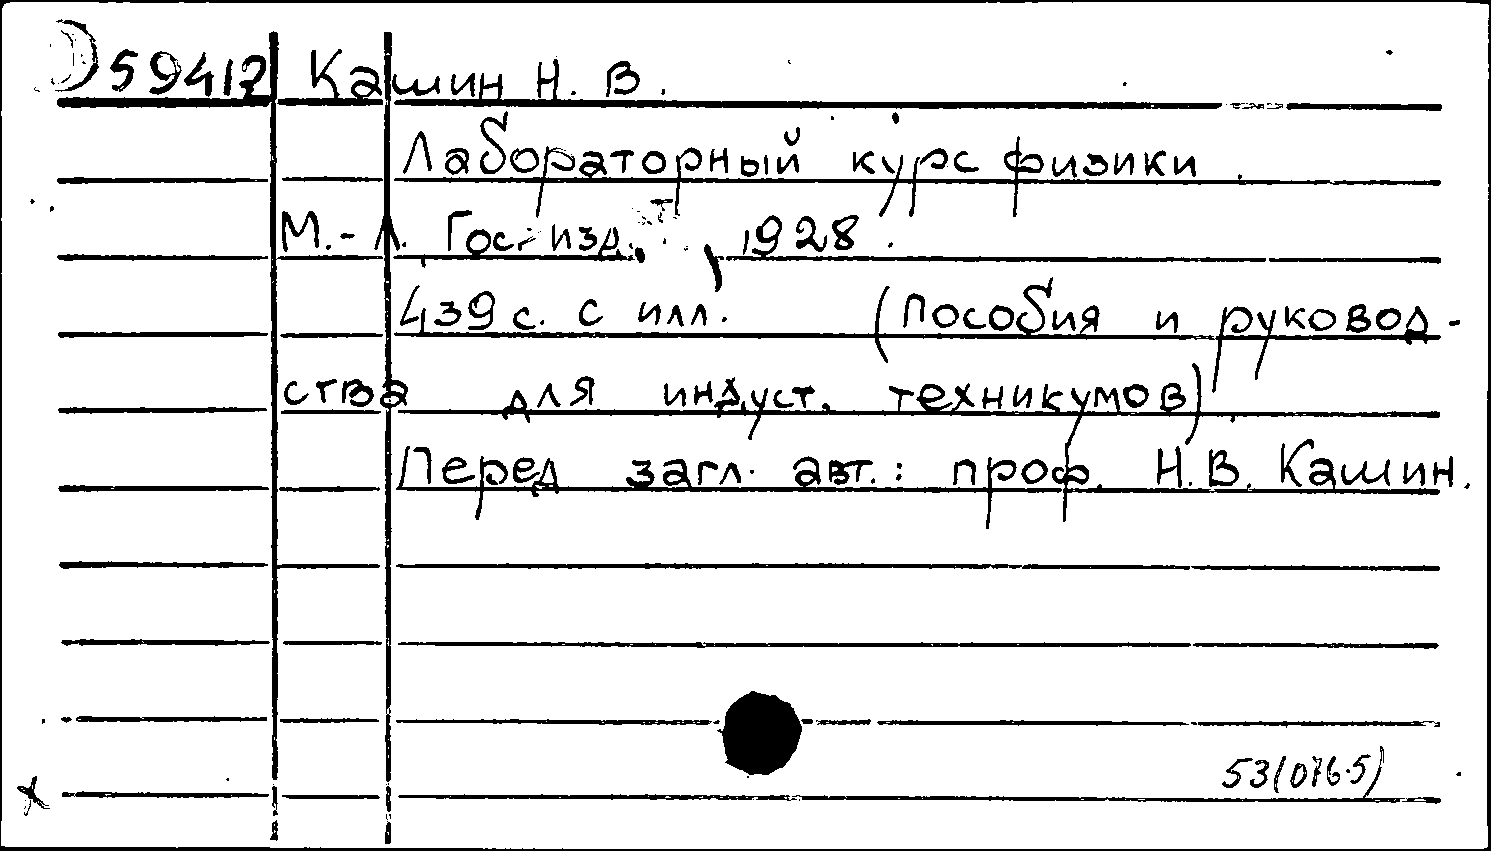 59412 Кашин Н. В.
Лабораторный курс физики.
М.-Л. Гос. изд., 1928.
439 с. с илл. (Пособия и руковод-
ства для индуст. техникумов)
Перед загл. авт.: проф. Н.В. Кашин.
53(076.5)